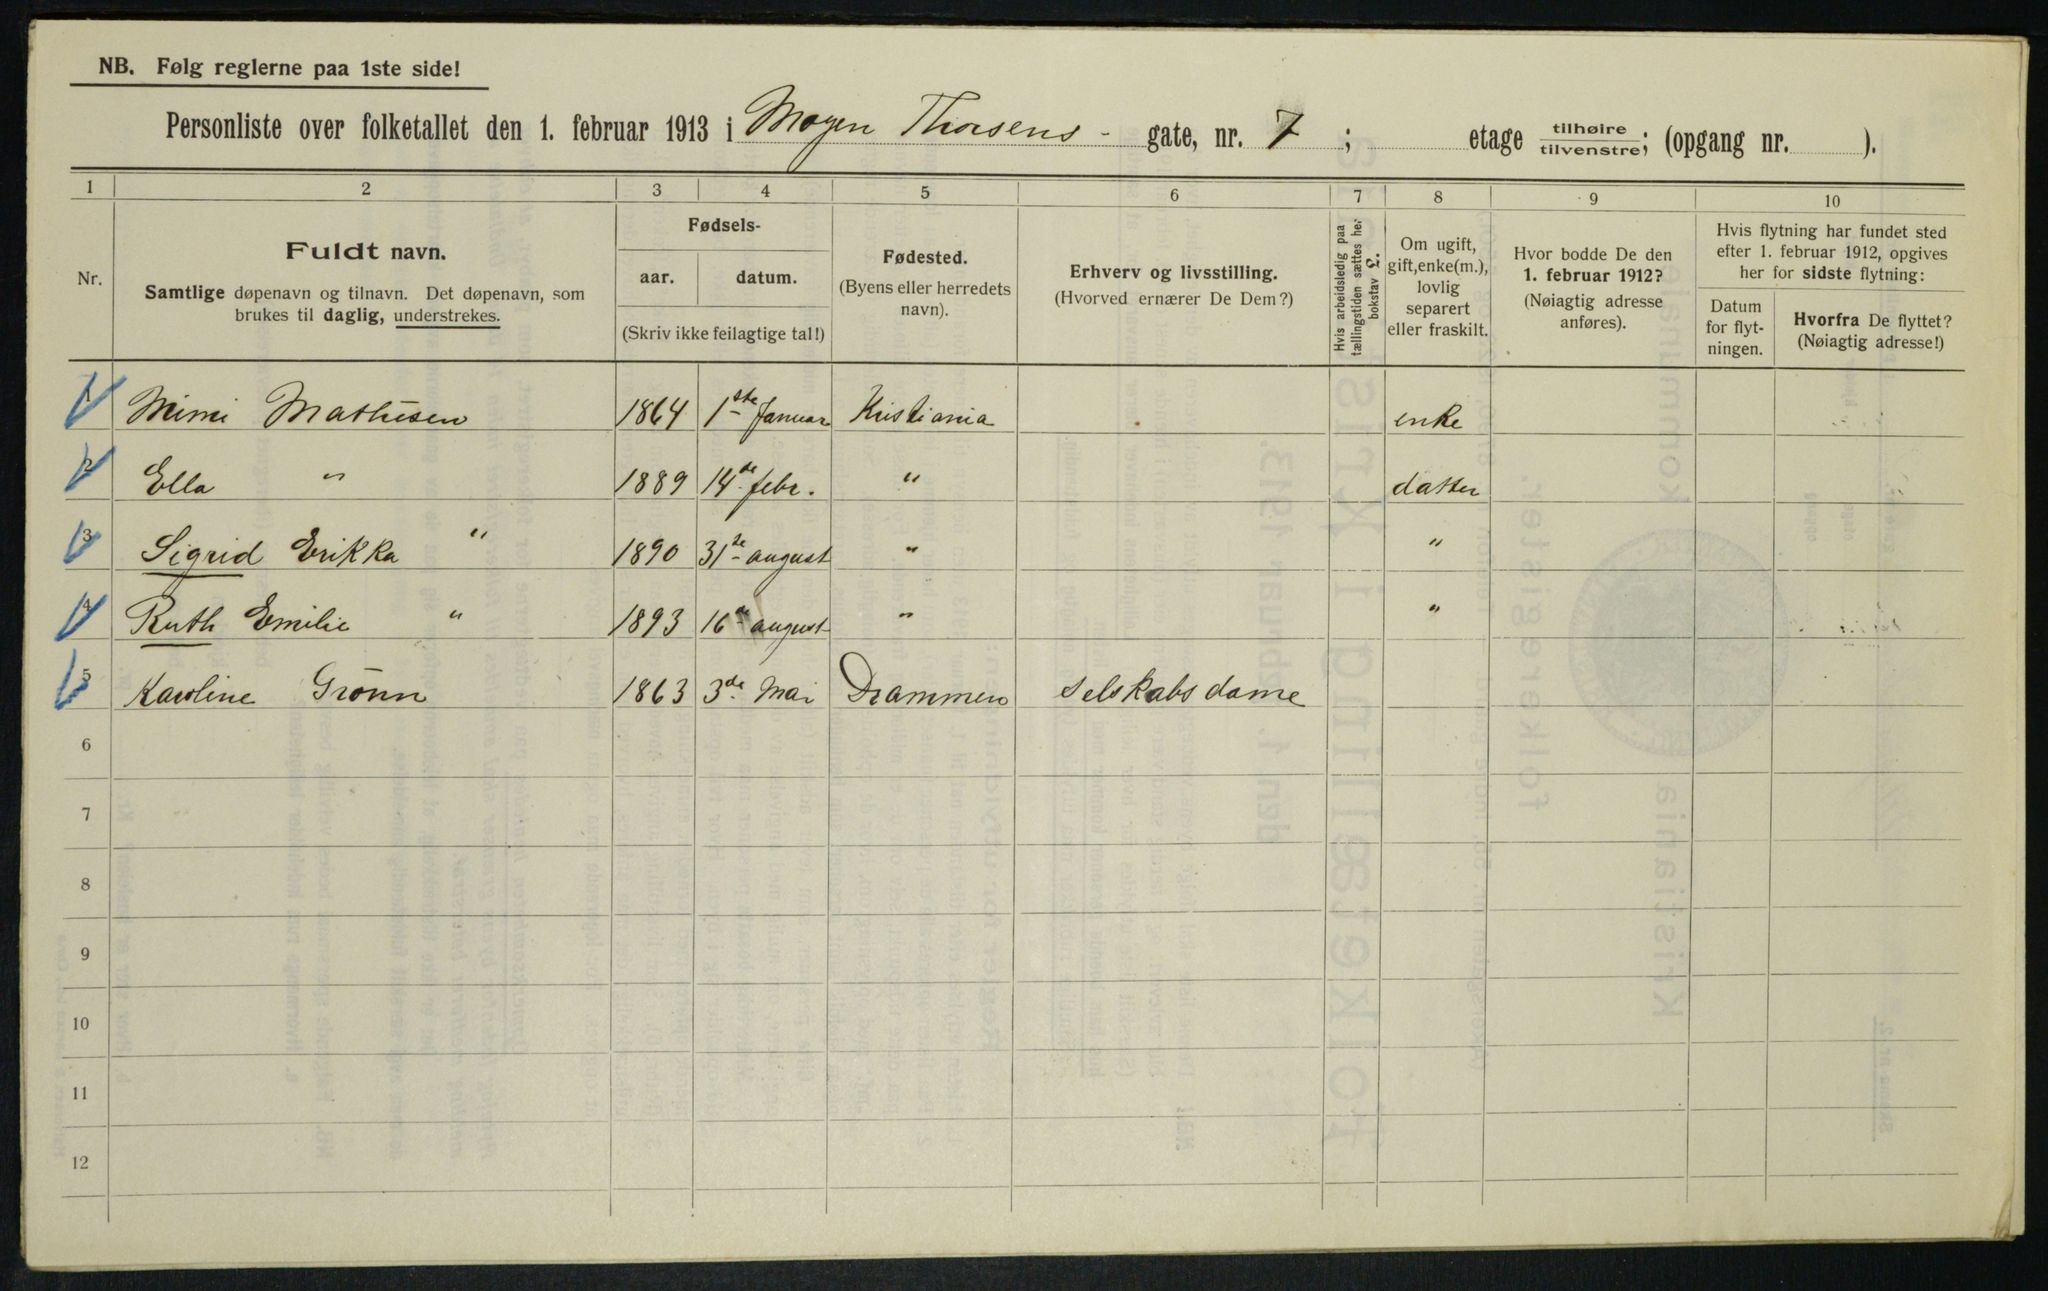 NB. Følg reglerne paa 1ste side!
Personliste over folketallet den 1. februar 1913 i Mogen Thorsens - gate, nr. 7 ; etage tilhøire tilvenstre; (opgang nr. ).
1 2 3 4 5 6 7 8 9 10
Nr.
Fuldt navn.
Samtlige døpenavn og tilnavn. Det døpenavn, som
brukes til daglig, understrekes.
Fødsels-
aar. datum.
(Skriv ikke feilagtige tal!)
Fødested.
(Byens eller herredets
navn).
Erhverv og livsstilling.
(Hvorved ernærer De Dem?)
Hvis arbeidsledig paa
tællingstiden sættes her
bokstav L.
Om ugift,
gift, enke(m.),
lovlig
separert
eller fraskilt.
Hvor bodde De den
1. februar 1912?
(Nøiagtig adresse
anføres).
Hvis flytning har fundet sted
efter 1. februar 1912, opgives
her for sidste flytning:
Datum
for flyt-
ningen.
Hvorfra De flyttet?
(Nøiagtig adresse!)
1 Mimi Mathisen 1864 1ste Januar Kristiania enke
2 Ella " 1889 14de febr. " datter
3 Sigrid Erikka " 1890 31te august " "
4 Ruth Emilie " 1893 16de august " "
5 Karoline Grönn 1863 3de Mai Drammen selskabsdame
6
7
8
9
10
11
12